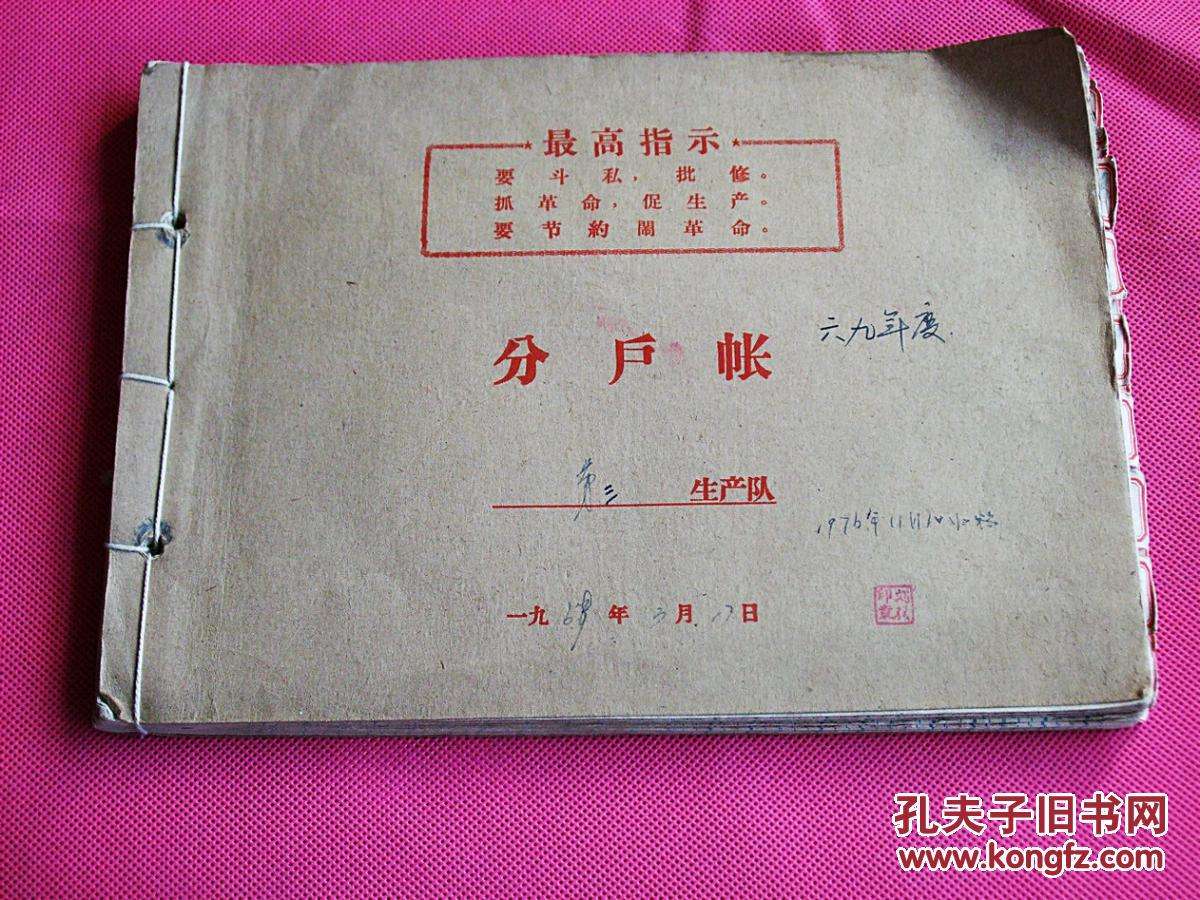 最高指示
要斗私，批修。
抓革命，促生产。
要节約閙革命。
分户帐 六九年度
第三 生产队
1976年11月
一九 年 月 日
孔夫子旧书网
www.kongfz.com